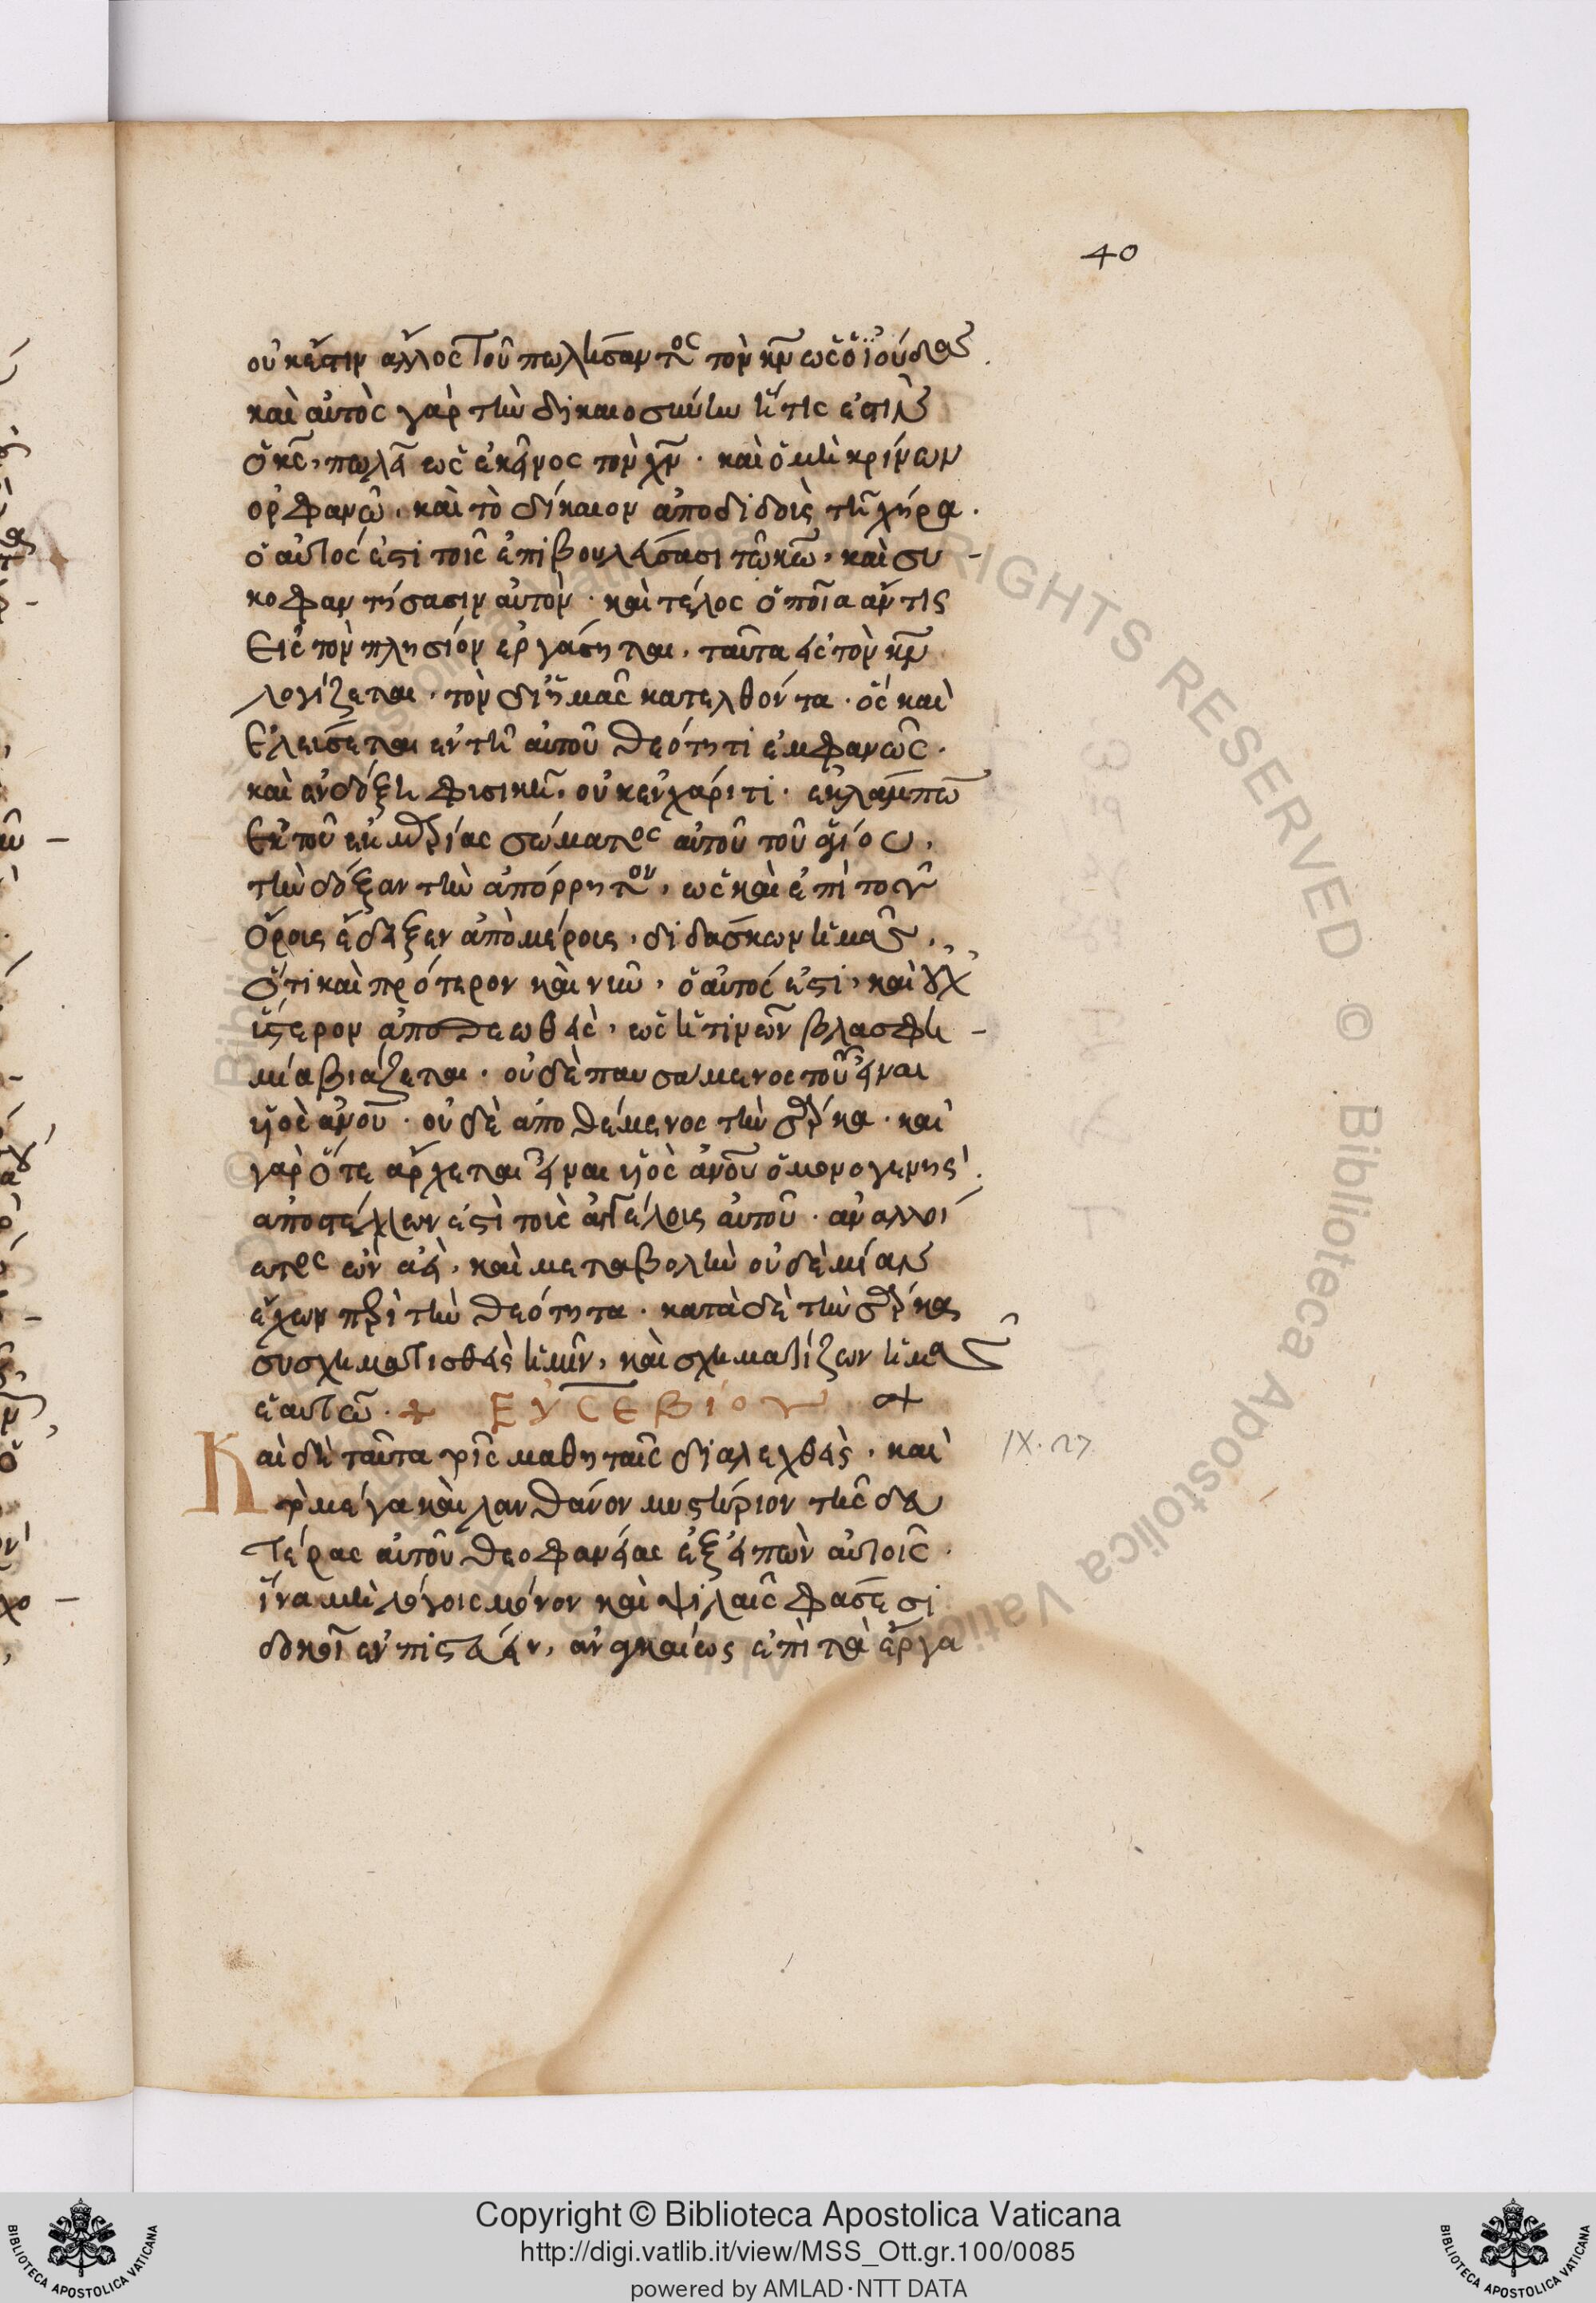 40
οὐκέστιν ἄλλος τοῦ πωλήσαντος τὸν κν ὡς ὁ ϊούδας.
καὶ αὐτὸς γὰρ τὴν δικαιοσύνην ἥτις ἐστὶν
ὁ κς, πωλεῖ ὡς ἐκεῖνος τὸν χν · καὶ ὁ μὴ κρίνων
ὀρφανῶ, καὶ τὸ δίκαιον ἀποδιδοὶς τῆ χήρα.
ὁ αὐτός ἐστι τοῖς ἐπιβουλεύσασι τῶ κω, καὶ συ-
κοφαντήσασιν αὐτὸν · καὶ τέλος ὁποῖα ἄν τις
εἰς τὸν πλησίον ἐργάσηται, ταῦτα εἰς τὸν κν
λογίζεται, τὸν δι ἡμᾶς κατελθόντα · ὃς καὶ
ἐλεύσεται ἐν τῆ αὐτοῦ θεότητι ἐμφανῶς.
καὶ ἐν δόξη φυσικῆ, οὐκ ἐν χάριτι · ἐκλάμπων
ἐκ τοῦ ἐκ μρίας σώματος αὐτοῦ τοῦ ἁγίου,
τὴν δόξαν τὴν ἀπόρρητον, ὡς καὶ ἐπὶ τοῦ
ὄρους ἔδειξεν ἀπὸ μέρους, διδάσκων ἡμᾶς,
ὅτι καὶ πρότερον καὶ νῦν, ὁ αὐτός ἐστι, καὶ οὐχ
ὕστερον ἀποθεωθεὶς, ὡς ἥ τινων βλασφη-
μία βιάζεται · οὐδὲ παυσάμενος τοῦ εἶναι
υἱὸς ἀνου · οὐδὲ ἀποθέμενος τὴν σάρκα · καὶ
γὰρ ὅτε ἄρχεται εἶναι υἱὸς ἀνου ὁ μονογενής.
ἀποστέλλων ἐστὶ τοὺς ἀγγέλους αὐτοῦ · ἀναλλοί
ωτος ὢν ἀεὶ, καὶ μεταβολὴν οὐδεμίαν
ἔχων περὶ τὴν θεότητα · κατὰ δὲ τὴν σάρκα
συσχηματισθεὶς ἡμῖν, καὶ σχηματίζων ἡμᾶς
ἑαυτῶ. + ΕΥΣΕΒΙΟΥ +
Και δὴ ταῦτα τοῖς μαθηταῖς διαλεχθεὶς, καὶ
τὸ μέγα καὶ λανθάνον μυστήριον τῆς δευ
τέρας αὐτοῦ θεοφανείας ἐξειπὼν αὐτοῖς.
ἵνα μὴ λόγοις μόνον καὶ ψιλαῖς φάσεσι
δοκοῖεν πιστεύειν, ἀναγκαίως ἐπὶ τὰ ἔργα
IX. 27
Copyright © Biblioteca Apostolica Vaticana
http://digi.vatlib.it/view/MSS_Ott.gr.100/0085
powered by AMLAD·NTT DATA
BIBLIOTECA APOSTOLICA VATICANA
BIBLIOTECA APOSTOLICA VATICANA